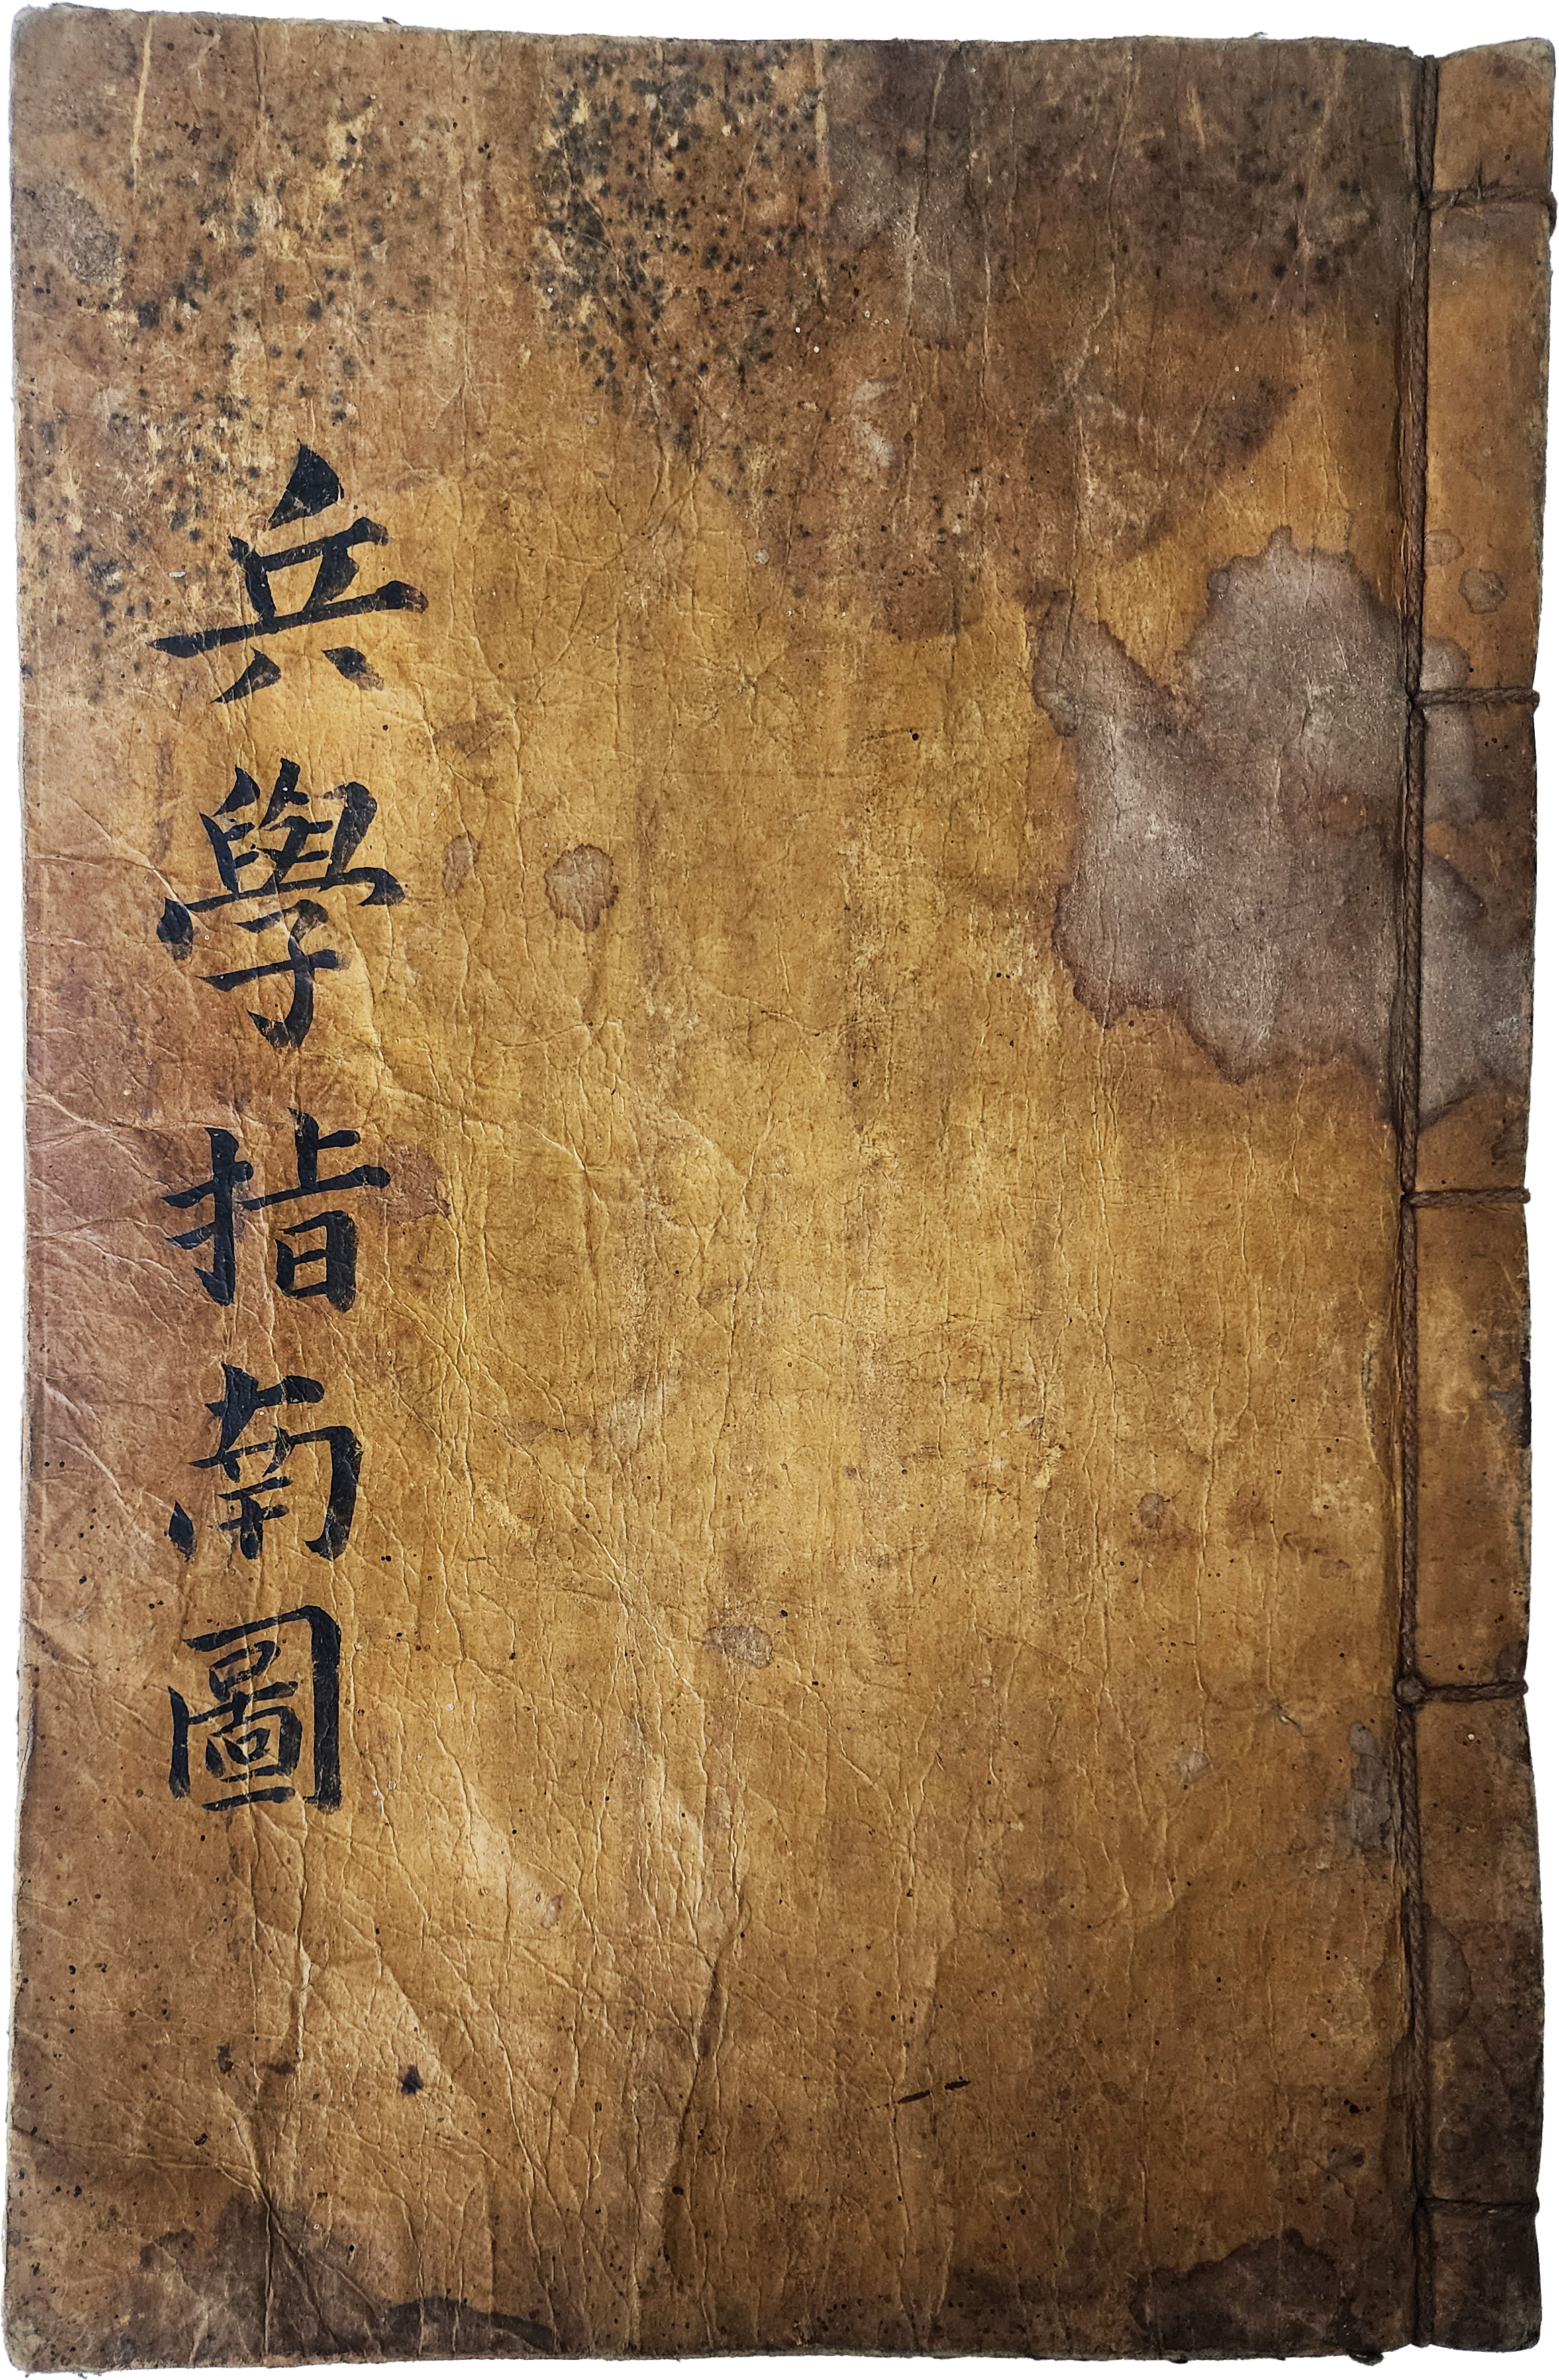 兵學指南圖